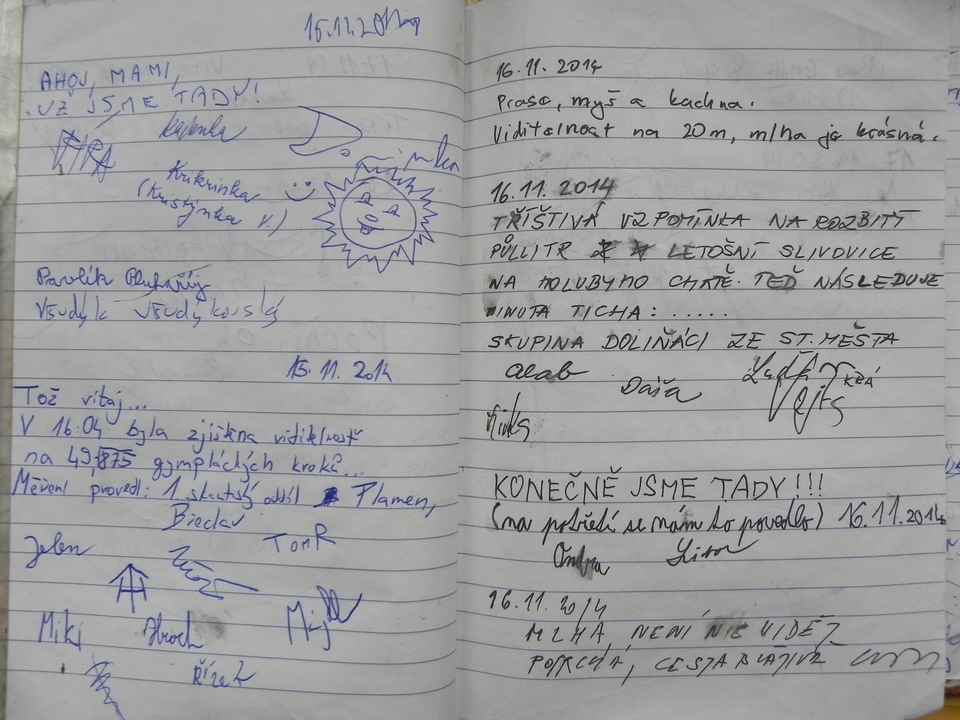 15.11.2014
AHOJ, MAMI,
UŽ JSME TADY!
Kajenka
Krikrinka
(Kristýnka V.)
Pavlík
Všudyk Všudykovský
15.11.2014
Tož vítaj...
V 16:04 byla zjištěna viditelnost
na 49,875 gympláckých kroků...
Měření provedl: 1. skautský oddíl Plamen,
Břeclav
Jelen
TomR
Miki
Řízek
16.11.2014
Prase, myš a kachna.
Viditelnost na 20m, mlha je krásná.
16.11.2014
TŘÍŠTIVÁ VZPOMÍNKA NA ROZBITÝ
PŮLLITR LETOŠNÍ SLIVOVICE
NA HOLUBYHO CHATĚ. TEĎ NÁSLEDUJE
MINUTA TICHA: .....
SKUPINA DOLIŇÁCI ZE ST. MĚSTA
Daša
KONEČNĚ JSME TADY!!!
(na potřetí se nám to povedlo) 16.11.2014
Ondra Libor
16.11.2014
MLHA NENÍ NIC VIDĚT